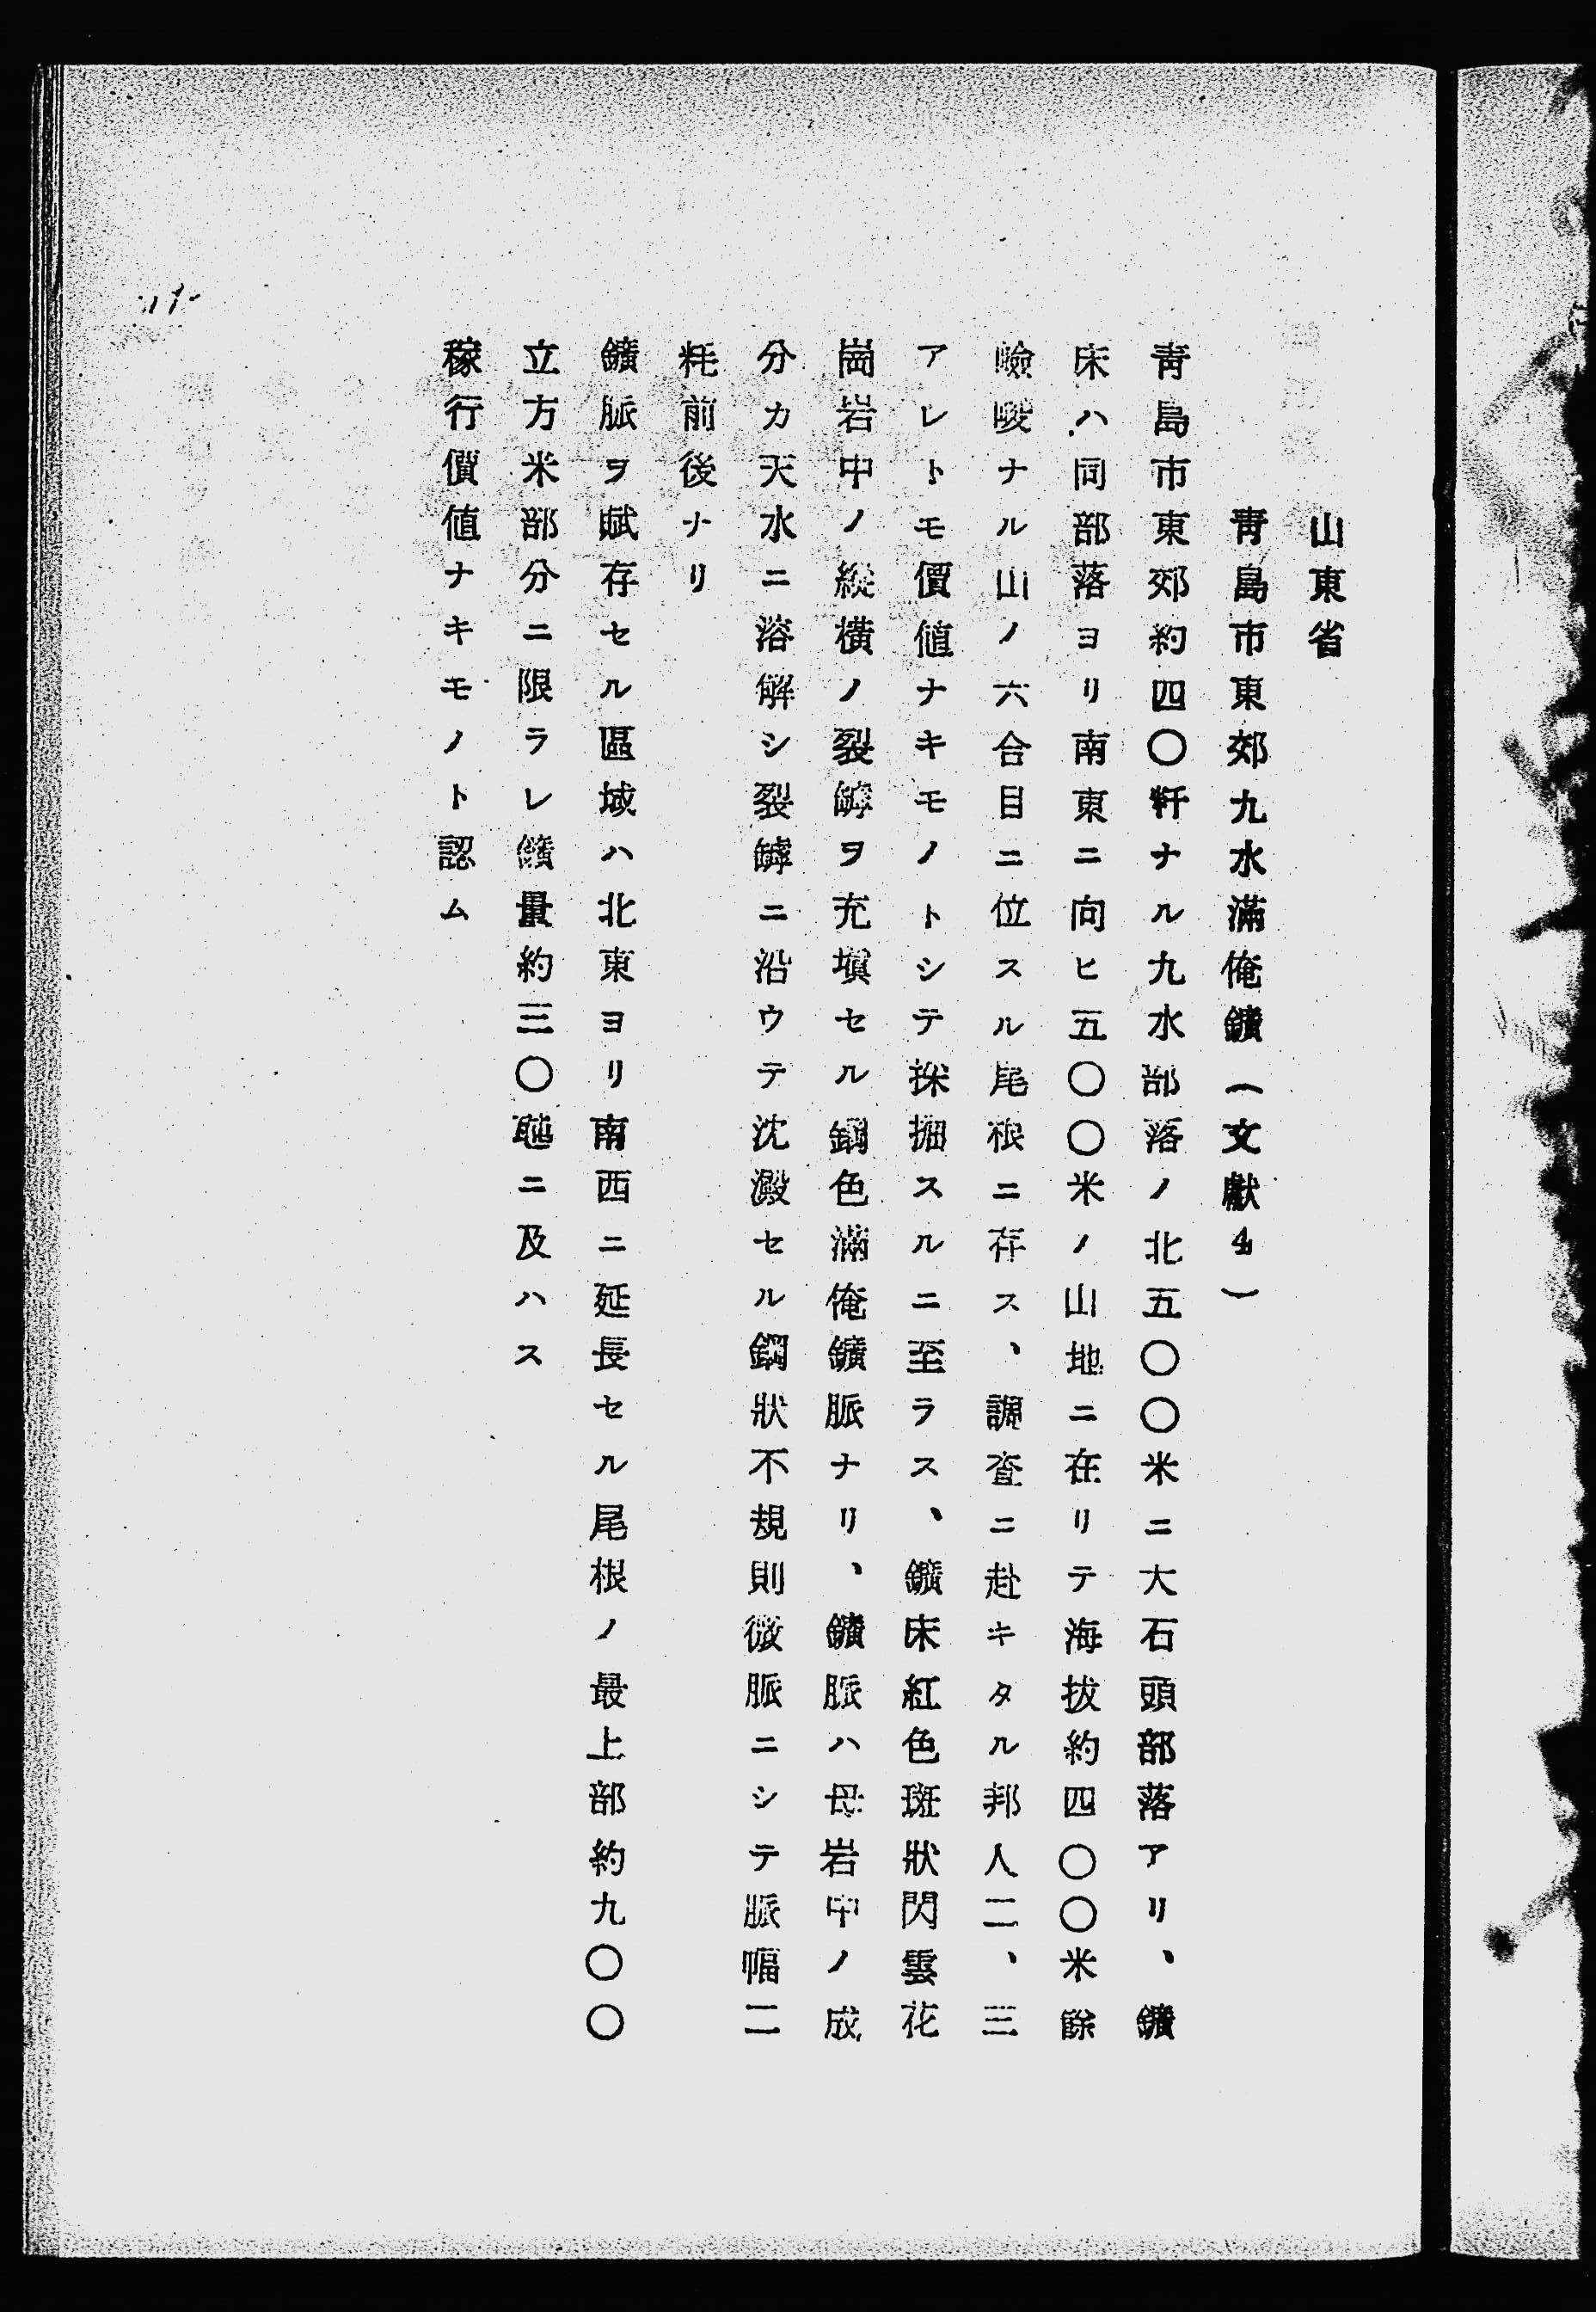 山東省
青島市東郊九水滿俺鑛（文獻4）
青島市東郊約四〇粁ナル九水部落ノ北五〇〇米ニ大石頭部落アリ、鑛
床ハ同部落ヨリ南東ニ向ヒ五〇〇米ノ山地ニ在リテ海拔約四〇〇米餘
嶮峻ナル山ノ六合目ニ位スル尾根ニ存ス、調査ニ赴キタル邦人二、三
アレトモ價値ナキモノトシテ採掘スルニ至ラス、鑛床紅色斑狀閃雲花
崗岩中ノ縱橫ノ裂罅ヲ充塡セル鋼色滿俺鑛脈ナリ、鑛脈ハ母岩中ノ成
分カ天水ニ溶解シ裂罅ニ沿ウテ沈澱セル鋼狀不規則微脈ニシテ脈幅二
粍前後ナリ
鑛脈ヲ賦存セル區域ハ北東ヨリ南西ニ延長セル尾根ノ最上部約九〇〇
立方米部分ニ限ラレ鑛量約三〇瓲ニ及ハス
稼行價値ナキモノト認ム